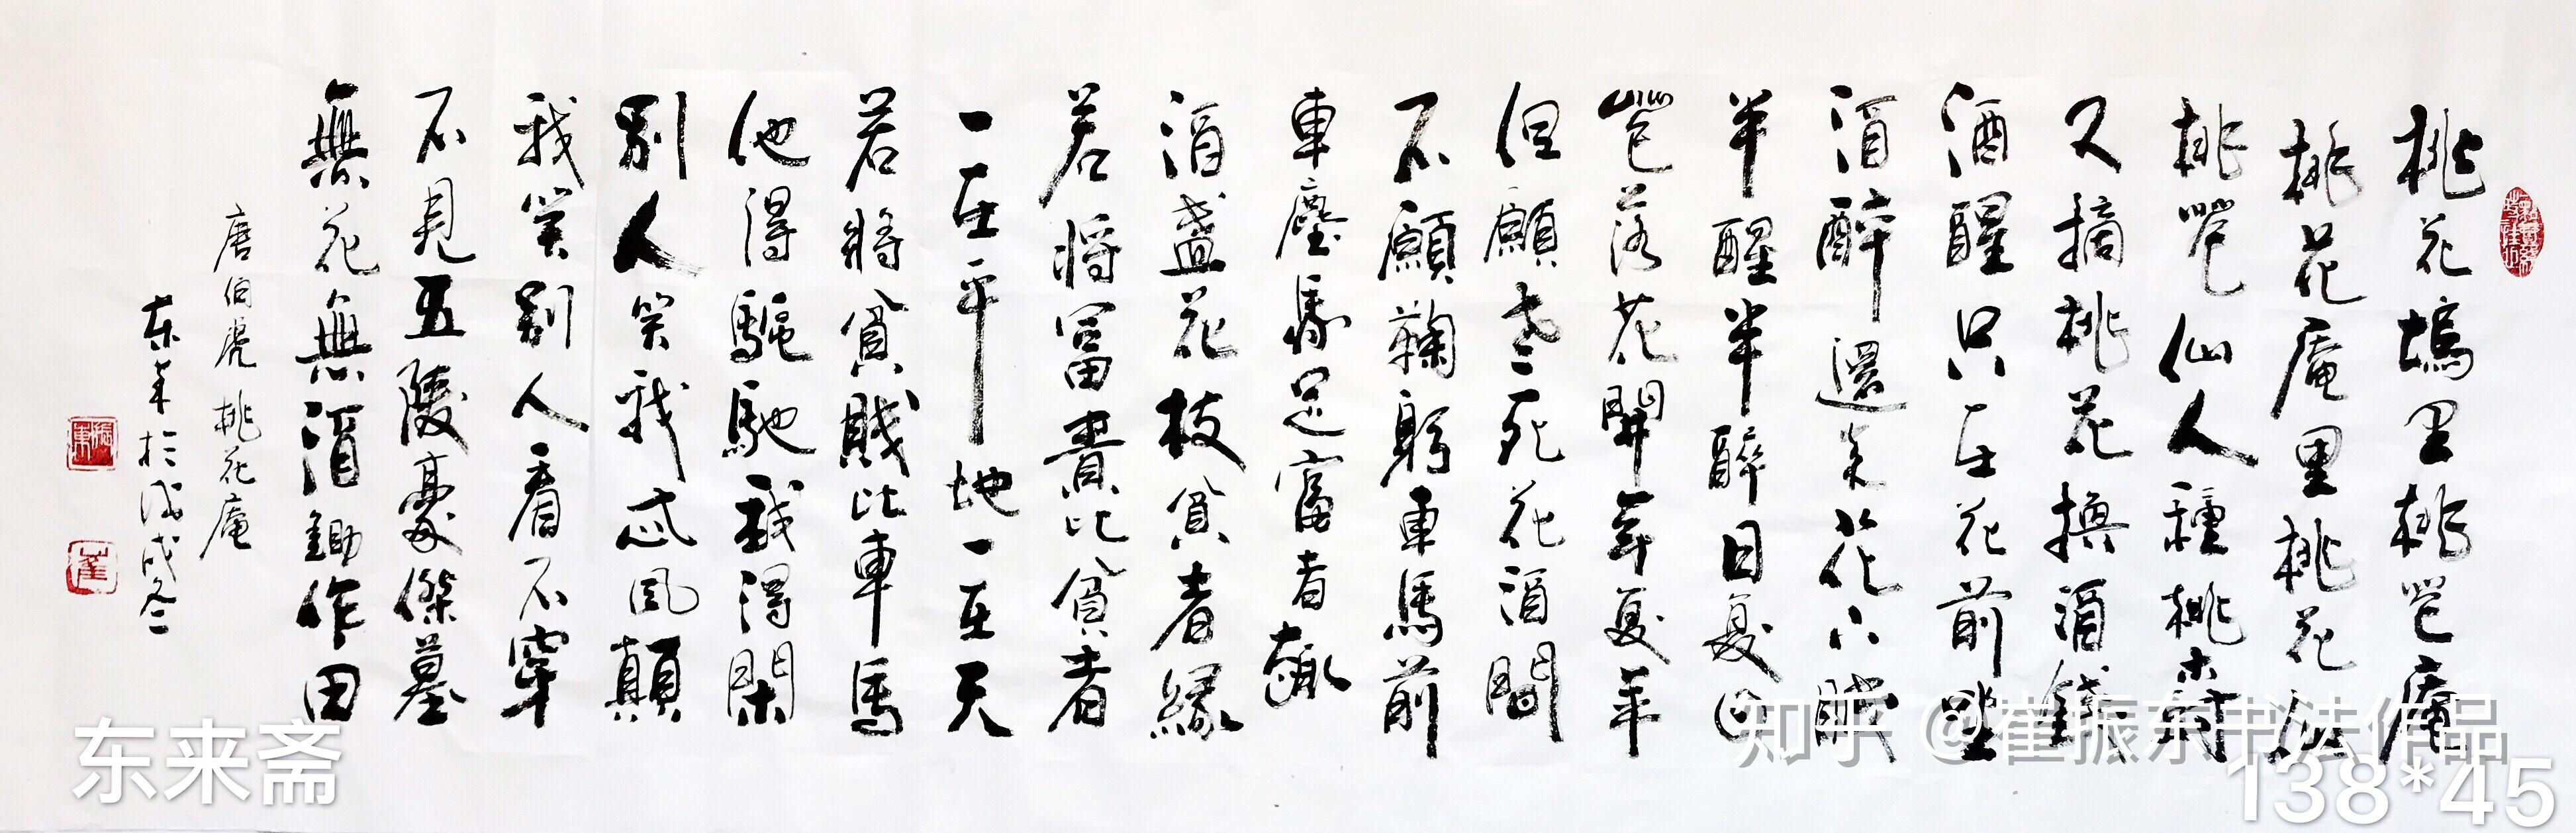 桃花塢里桃花庵
桃花庵里桃花仙
桃花仙人種桃樹
又摘桃花換酒錢
酒醒只在花前坐
酒醉還来花下眠
半醒半醉日复日
花落花開年复年
但願老死花酒間
不願鞠躬車馬前
車塵馬足富者趣
酒盞花枝貧者緣
若將富貴比貧者
一在平地一在天
若將貧賤比車馬
他得驅馳我得閑
別人笑我忒風顛
我笑別人看不穿
不見五陵豪傑墓
無花無酒鋤作田
唐伯虎桃花庵
东来於戊戌冬
振東
崔
东来斋
知乎 @崔振东书法作品
138*45